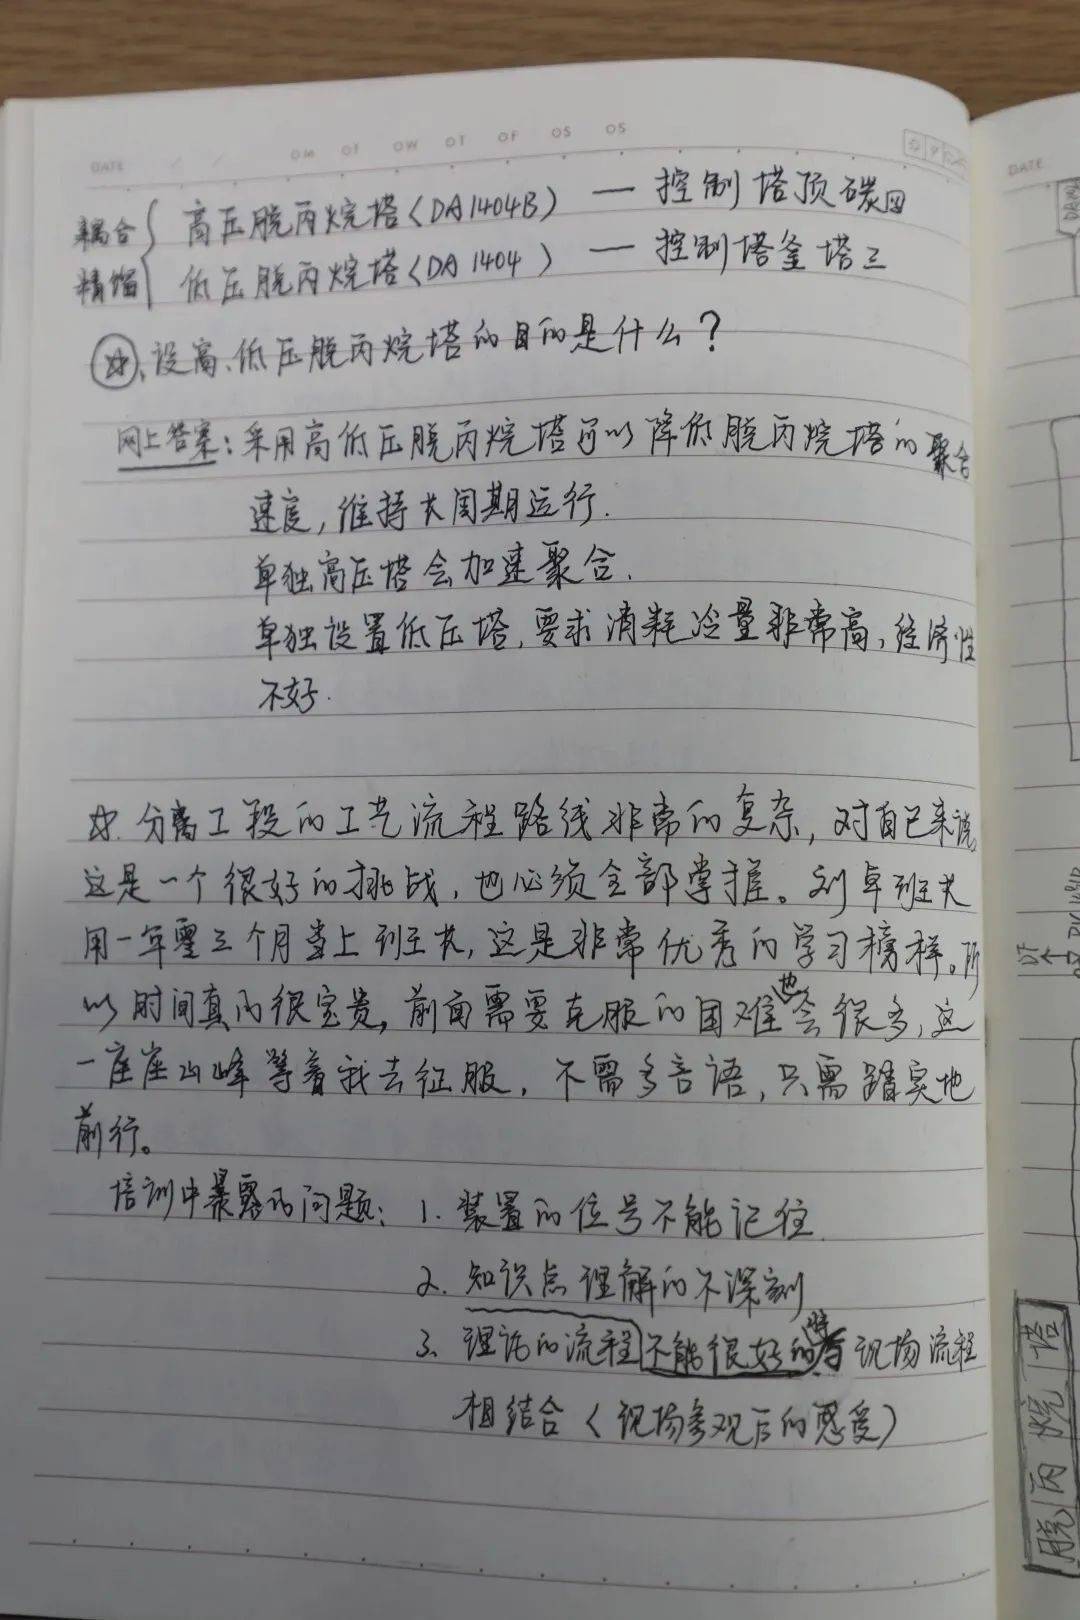 DATE OM OT OW OT OF OS OS
耦合 高压脱丙烷塔(DA1404B) — 控制塔顶碳四
精馏 低压脱丙烷塔(DA1404) — 控制塔釜塔三
☆、设高、低压脱丙烷塔的目的是什么？
网上答案：采用高低压脱丙烷塔可以降低脱丙烷塔的聚合
速度，维持长周期运行.
单独高压塔会加速聚合.
单独设置低压塔，要求消耗冷量非常高，经济性
不好.
☆. 分离工段的工艺流程路线非常的复杂，对自己来说
这是一个很好的挑战，也必须全部掌握。刘卓班长
用一年零三个月当上班长，这是非常优秀的学习榜样。所
以时间真的很宝贵，前面需要克服的困难也会很多，这
一座座山峰等着我去征服，不需多言语，只需踏实地
前行。
培训中暴露的问题：1. 装置的位号不能记住.
2. 知识点理解的不深刻
3. 理论的流程不能很好的与现场流程
相结合（现场参观后的感受）
DATE
脱丙烷塔